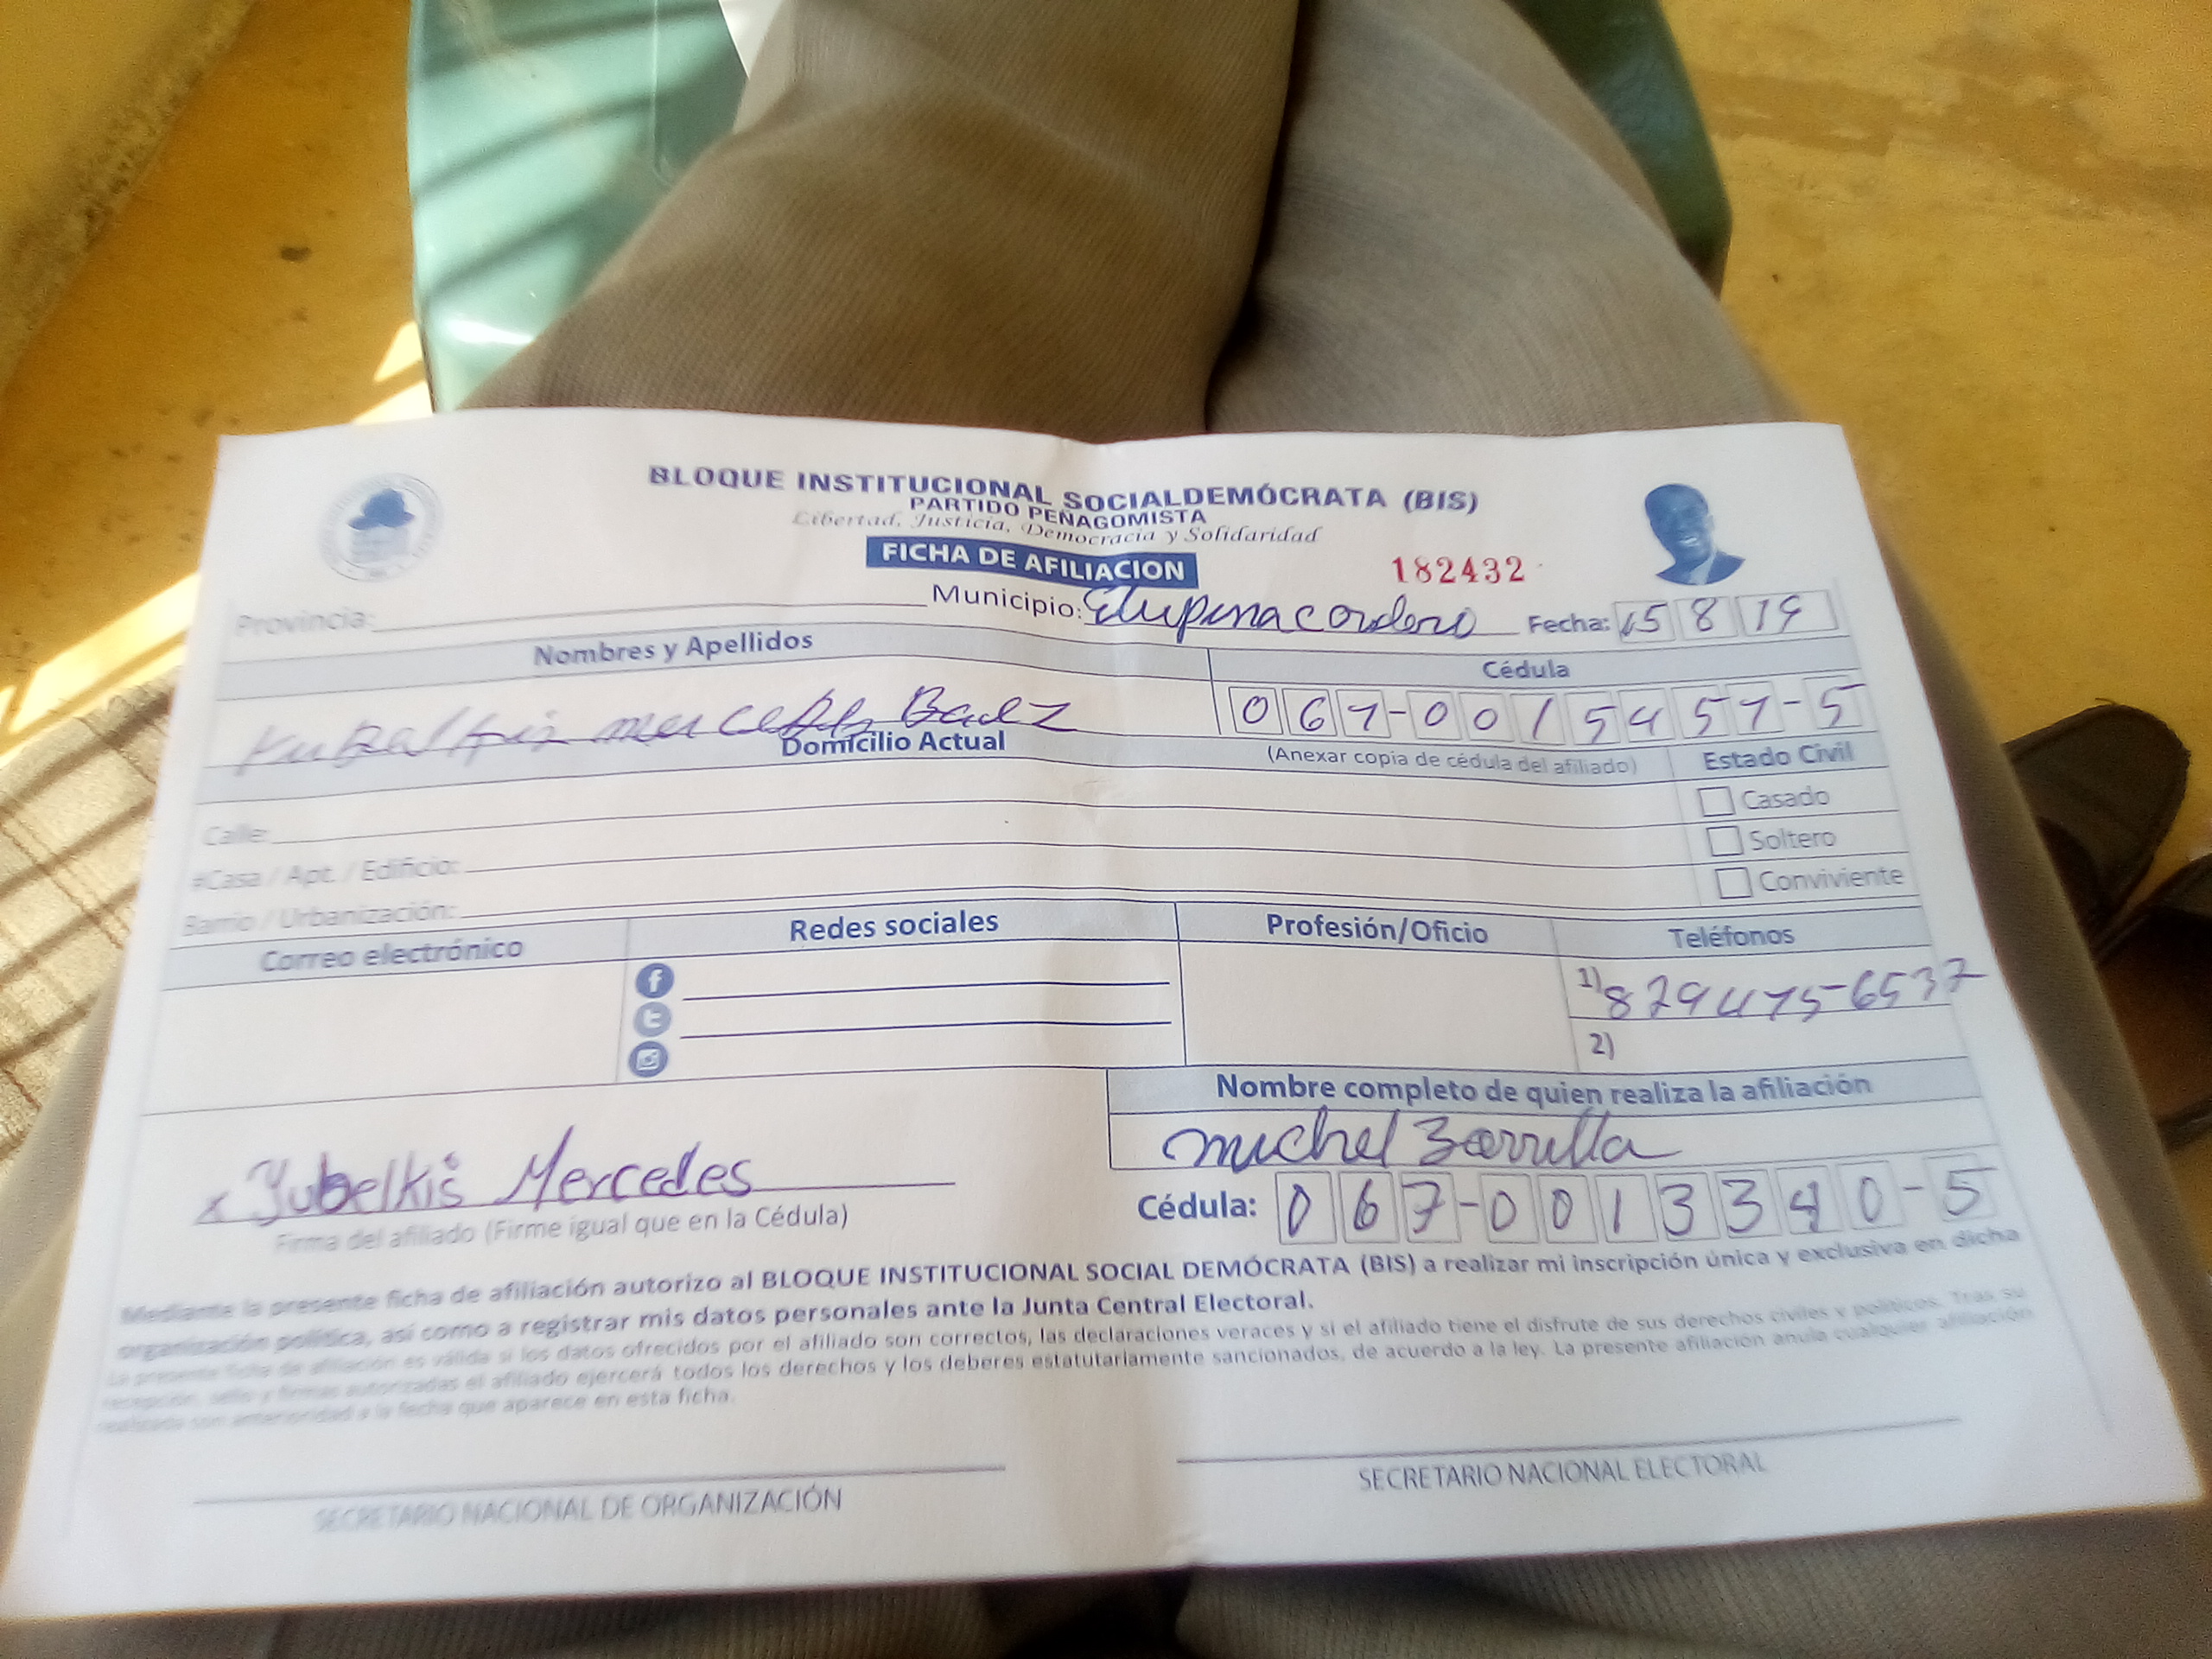 BLOQUE INSTITUCIONAL SOCIALDEMÓCRATA (BIS)
PARTIDO PEÑAGOMISTA
Libertad, Justicia, Democracia y Solidaridad
FICHA DE AFILIACION
182432
Provincia: Municipio: Elupina cordero Fecha: 15 8 19
Nombres y Apellidos Cédula
mercedes Baez 067-0015457-5
Domicilio Actual (Anexar copia de cédula del afiliado) Estado Civil
Casado
Calle:
Soltero
#Casa / Apt. / Edificio:
Conviviente
Barrio / Urbanización:
Correo electrónico Redes sociales Profesión/Oficio Teléfonos
1) 829475-6537
2)
Nombre completo de quien realiza la afiliación
michel Zorrilla
x Yubelkis Mercedes
Cédula: 067-0013340-5
Firma del afiliado (Firme igual que en la Cédula)
Mediante la presente ficha de afiliación autorizo al BLOQUE INSTITUCIONAL SOCIAL DEMÓCRATA (BIS) a realizar mi inscripción única y exclusiva en dicha
organización política, así como a registrar mis datos personales ante la Junta Central Electoral.
La presente ficha de afiliación es válida si los datos ofrecidos por el afiliado son correctos, las declaraciones veraces y si el afiliado tiene el disfrute de sus derechos civiles y políticos. Tras su
recepción, sello y firmas autorizadas el afiliado ejercerá todos los derechos y los deberes estatutariamente sancionados, de acuerdo a la ley. La presente afiliación anula cualquier afiliación
realizada con anterioridad a la fecha que aparece en esta ficha.
SECRETARIO NACIONAL DE ORGANIZACIÓN
SECRETARIO NACIONAL ELECTORAL